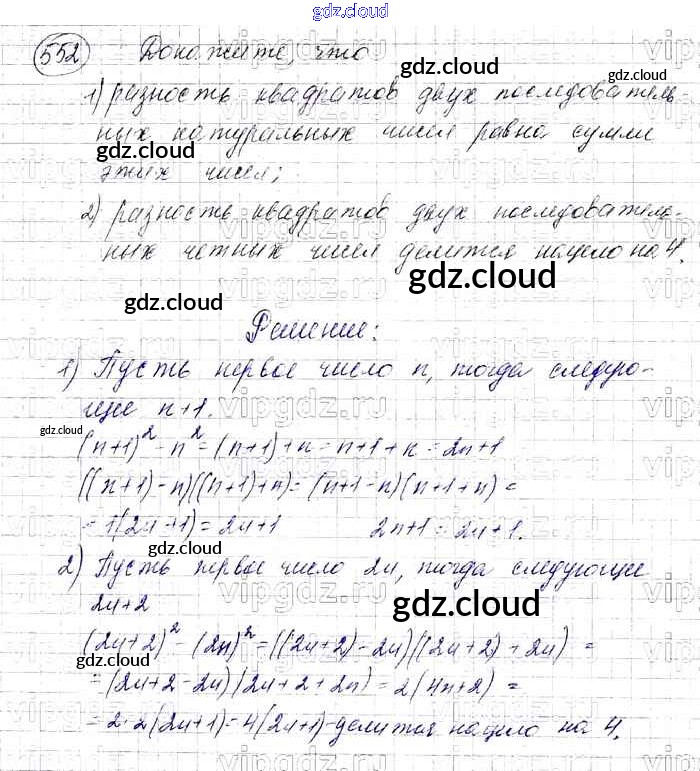 gdz.cloud
552 Докажите, что
1) разность квадратов двух последователь-
ных натуральных чисел равна сумме
gdz.cloud
gdz.cloud
этих чисел;
2) разность квадратов двух последователь-
ных четных чисел делится нацело на 4.
gdz.cloud
gdz.cloud
Решение:
1) Пусть первое число n, тогда следую-
щее n+1.
gdz.cloud
(n+1)² - n² = (n+1)+n = n+1+n = 2n+1
((n+1)-n)((n+1)+n) = (n+1-n)(n+1+n) =
= 1(2n+1) = 2n+1 2n+1 = 2n+1.
gdz.cloud
2) Пусть первое число 2n, тогда следующее
2n+2
gdz.cloud
(2n+2)² - (2n)² = ((2n+2)-2n)((2n+2)+2n) =
gdz.cloud
= (2n+2-2n)(2n+2+2n) = 2(4n+2) =
= 2·2(2n+1) = 4(2n+1) - делится нацело на 4.
gdz.cloud